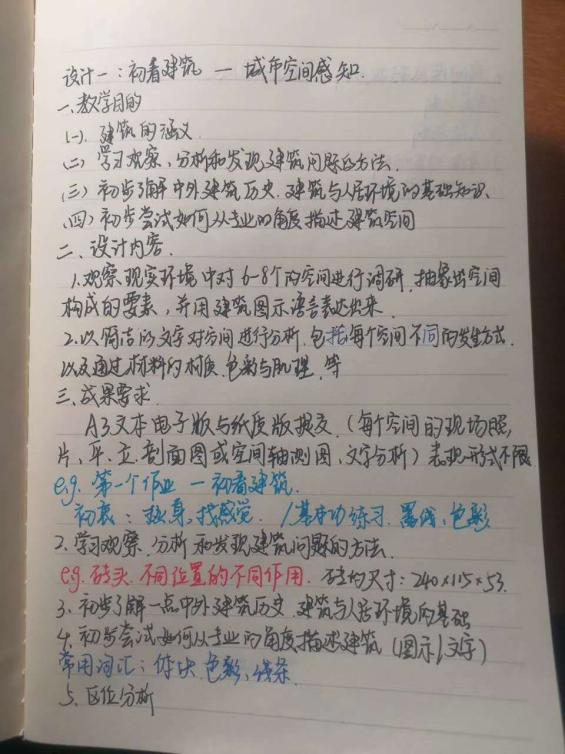 设计一：初看建筑 — 城市空间感知.
一、教学目的
(一). 建筑的涵义
(二) 学习观察、分析和发现建筑问题的方法.
(三) 初步了解中外建筑历史、建筑与人居环境的基础知识、
(四) 初步尝试如何从专业的角度描述建筑空间
二、设计内容.
1.观察现实环境中对6-8个的空间进行调研，抽象出空间
构成的要素，并用建筑图示语言表达出来.
2.以简洁的文字对空间进行分析.包括每个空间不同的发生方式.
以及通过材料的材质、色彩与肌理、等
三、成果要求.
A3文本电子版与纸质版提交.（每个空间的现场照
片、平、立、剖面图或空间轴测图、文字分析）表现形式不限
e.g. 第一个作业 — 初看建筑.
初衷：热身、找感觉. /基本功练习. 墨线、色彩
2.学习观察.分析和发现建筑问题的方法.
eg. 砖头.不同位置的不同作用. 砖的尺寸：240×115×53.
3、初步了解一点中外建筑历史、建筑与人居环境的基础
4、初步尝试如何从专业的角度描述建筑（图示/文字）
常用词汇：体块、色彩、线条.
5、区位分析